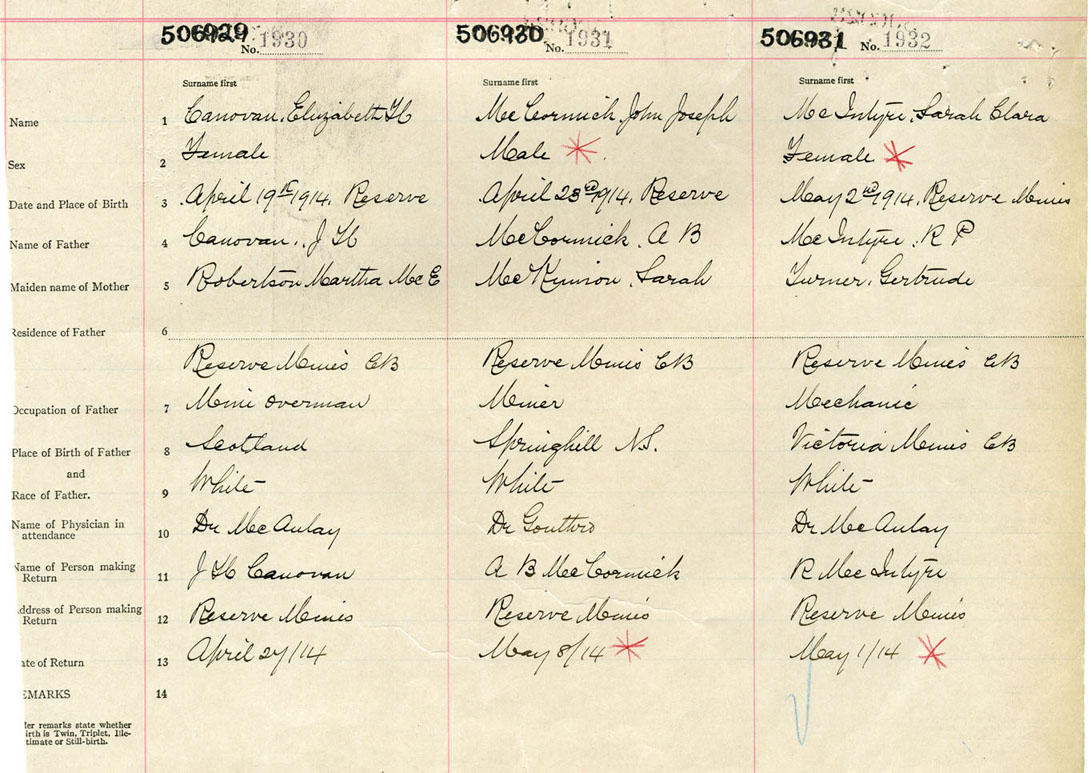 506929 No. 1930 506930 No. 1931 506931 No. 1932
Surname first Surname first Surname first
Name 1 Canovan, Elizabeth H McCormick, John Joseph McIntyre, Sarah Clara
Sex 2 Female Male Female
Date and Place of Birth 3 April 19th 1914, Reserve April 23rd 1914, Reserve May 2nd 1914, Reserve Mines
Name of Father 4 Canovan, J H McCormick, A B McIntyre, R P
Maiden name of Mother 5 Robertson Martha Mc E McKinnon, Sarah Turner, Gertrude
Residence of Father 6
Reserve Mines CB Reserve Mines CB Reserve Mines CB
Occupation of Father 7 Mine overman Miner Mechanic
Place of Birth of Father 8 Scotland Springhill N.S. Victoria Mines CB
and
Race of Father. 9 White White White
Name of Physician in
attendance 10 Dr MacAulay Dr MacAulay
Name of Person making
Return 11 J H Canovan A B McCormick R McIntyre
ddress of Person making
Return 12 Reserve Mines Reserve Mines Reserve Mines
ate of Return 13 April 27/14 May 8/14 May 1/14
EMARKS 14
der remarks state whether
irth is Twin, Triplet, Ille-
timate or Still-birth.